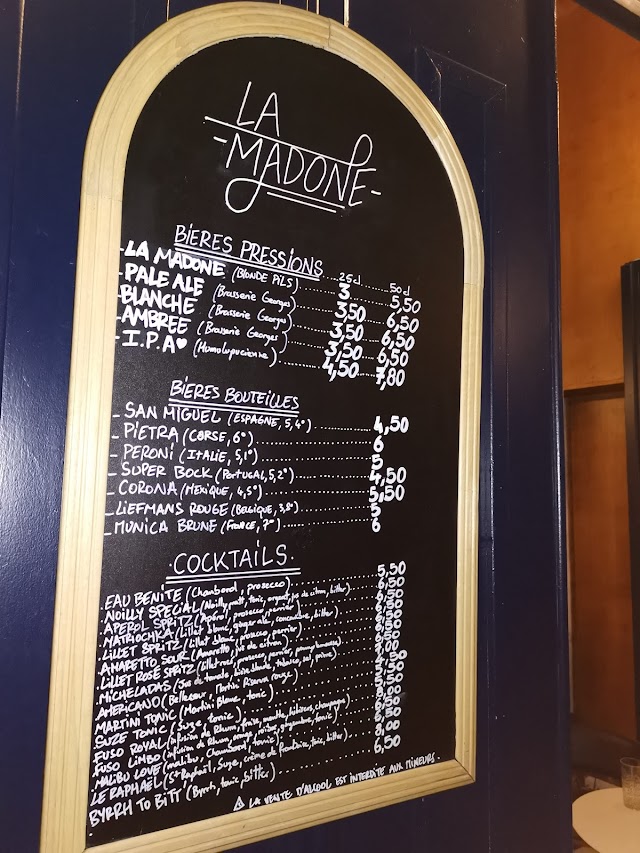 LA
-MADONE-
BIERES PRESSIONS
25cl 50cl
- LA MADONE (BLONDE PILS) 3 5,50
- PALE ALE (Brasserie Georges) 3,50 6,50
- BLANCHE (Brasserie Georges) 3,50 6,50
- AMBREE (Brasserie Georges) 3,50 6,50
- I.P.A♥ (Houmoulupucienne) 4,50 7,80
BIERES BOUTEILLES
- SAN MIGUEL (ESPAGNE, 5,4°) 4,50
- PIETRA (CORSE, 6°) 6
- PERONI (ITALIE, 5,1°) 5
- SUPER BOCK (PORTUGAL, 5,2°) 4,50
- CORONA (MEXIQUE, 4,5°) 5,50
- LIEFMANS ROUGE (BELGIQUE, 3,8°) 5
- MUNICA BRUNE (FRANCE, 7°) 6
COCKTAILS.
. EAU BENITE (Chambord, prosecco) 5,50
. NOILLY SPECIAL (Noilly prat, tonic, orgeat, jus de citron, bitter) 6,50
. APEROL SPRITZ (Apérol, prosecco, perrier) 6,50
. MATRIOCHKA (Lillet blanc, ginger ale, concombre, bitter)
. LILLET SPRITZ (Lillet blanc, prosecco, perrier)
. AMARETTO SOUR (Amaretto, jus de citron)
. LILLET ROSE SPRITZ (Lillet rosé, prosecco, perrier,
. MICHELADAS (Jus de tomate, bière blonde, tabasco, sel, poivre)
. AMERICANO (Bellecour, Martini Riserva rouge)
MARTINI TONIC (Martini Blanc, tonic)
SUZE TONIC (Suze, tonic)
FUSO ROYAL (infusion de Rhum, fraise, menthe, hibiscus, champagne)
FUSO LIMBO (infusion de Rhum, orange, raisin, gingembre, tonic)
. MALIBU LOVE (malibu, Chambord, tonic)
LE RAPHAËL (St Raphaël, Suze, crème de framboise, tonic, bitter)
BYRRH TO BITT' (Byrrh, tonic, bitter) 6,50
⚠ LA VENTE D'ALCOOL EST INTERDITE AUX MINEURS.